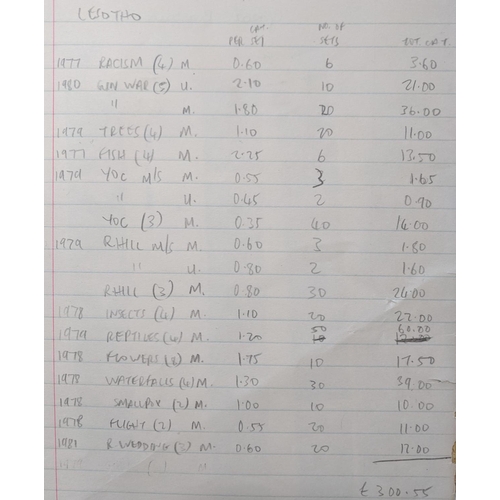 LESOTHO
CAT. NO. OF
PER SET SETS TOT CAT
1977 RACISM (4) M 0.60 6 3.60
1980 WIN WAR (5) U. 2.10 10 21.00
" M. 1.80 20 36.00
1979 TREES (4) M. 1.10 20 11.00
1977 FISH (4) M. 2.25 6 13.50
1979 YOC M/S M. 0.55 3 1.65
" U. 0.45 2 0.90
YOC (3) M. 0.35 40 14.00
1979 RHILL M/S M. 0.60 3 1.80
" U. 0.80 2 1.60
RHILL (3) M. 0.80 30 24.00
1978 INSECTS (4) M. 1.10 20 22.00
50 60.00
1979 REPTILES (4) M. 1.20 10 12.00
1978 FLOWERS (8) M. 1.75 10 17.50
1978 WATERFALLS (4) M. 1.30 30 39.00
1978 SMALLPOX (2) M. 1.00 10 10.00
1978 FLIGHT (2) M. 0.55 20 11.00
1981 R WEDDING (3) M. 0.60 20 12.00
£300.55